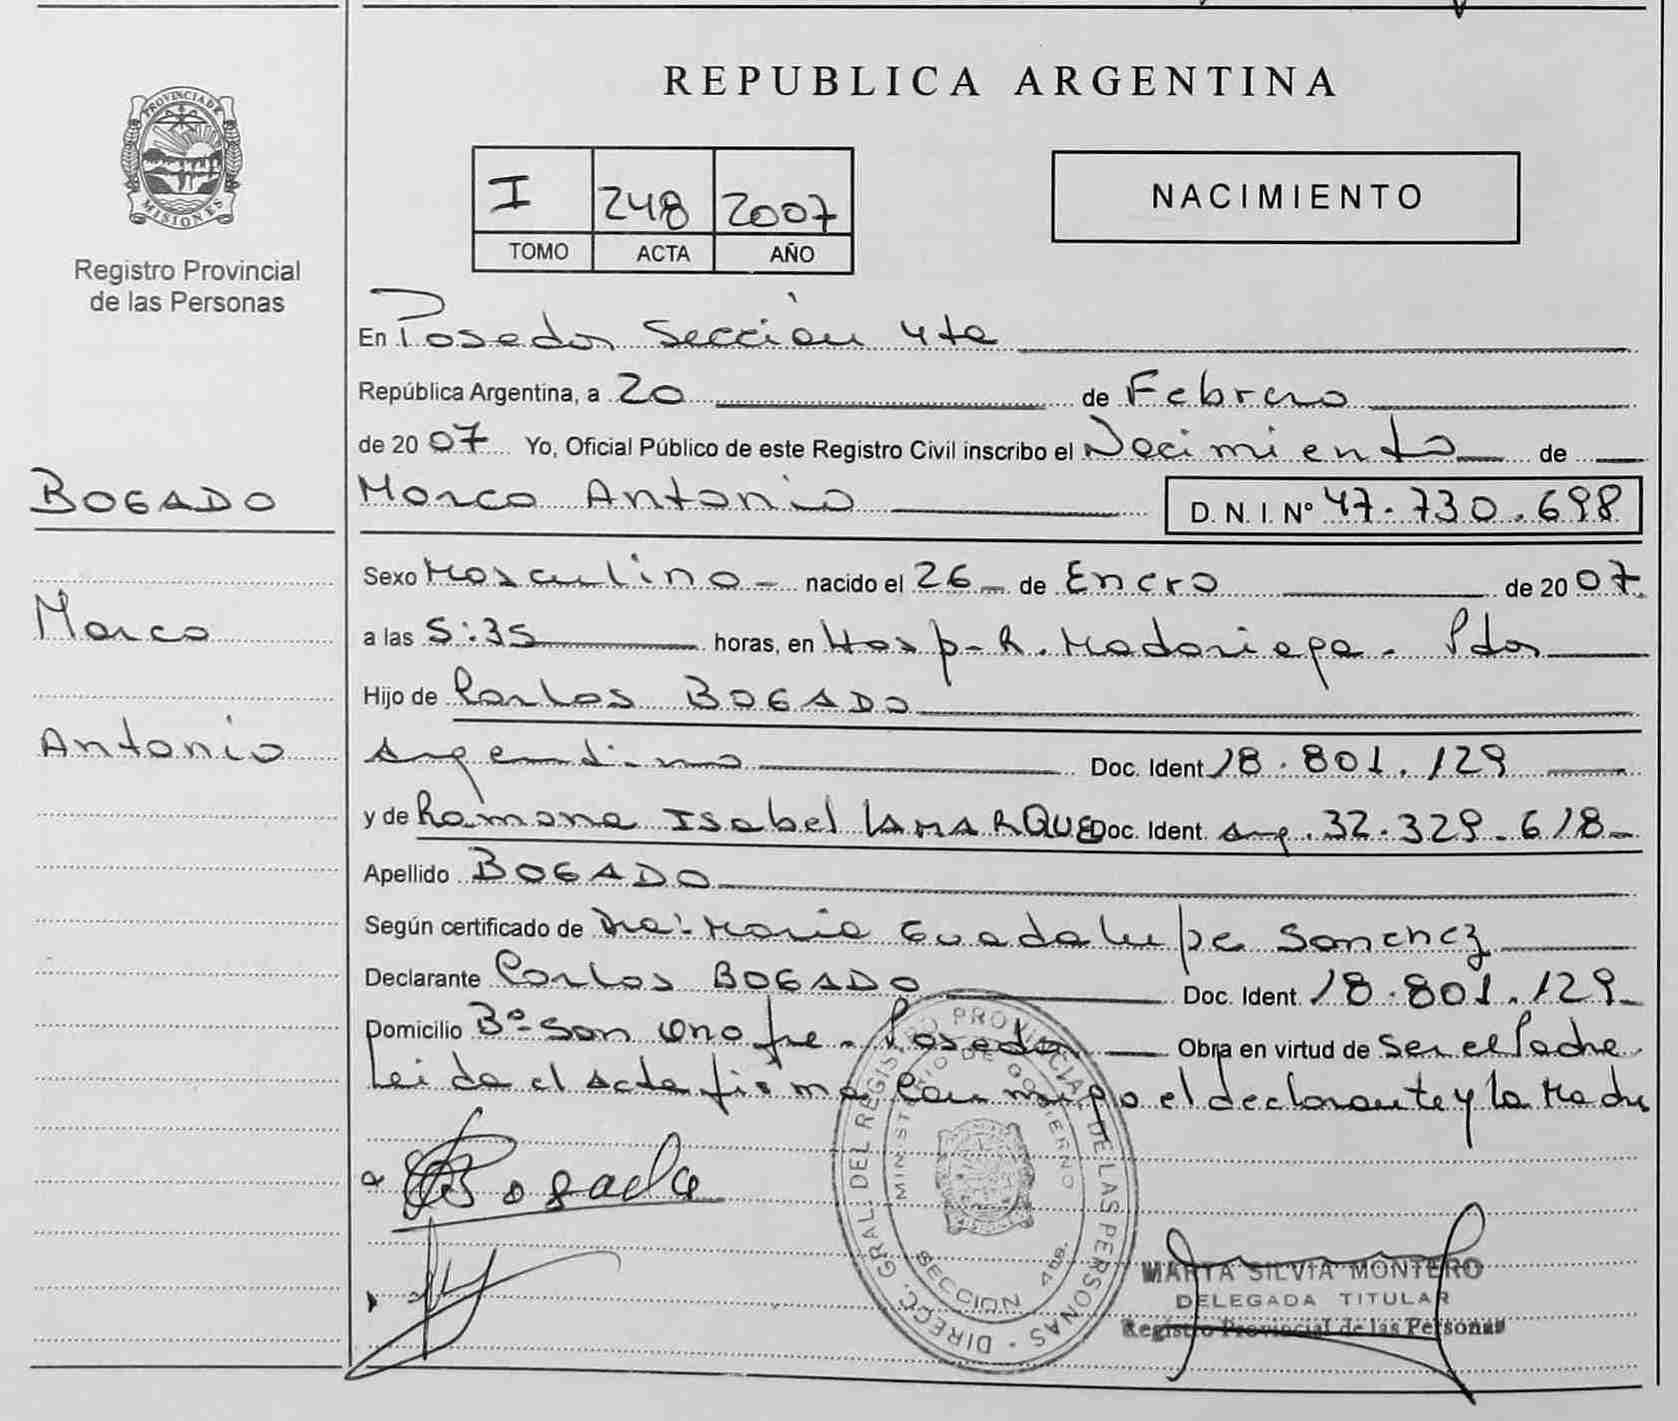 REPUBLICA ARGENTINA
PROVINCIA DE
MISIONES
Registro Provincial
de las Personas
I 248 2007
TOMO ACTA AÑO
NACIMIENTO
En Posadas Sección 4ta
República Argentina, a 20 de Febrero
de 2007 Yo, Oficial Público de este Registro Civil inscribo el Nacimiento de
BOGADO
Marco Antonio D. N. I. N° 47.730.698
Sexo Masculino - nacido el 26 - de Enero de 2007.
Marco
a las 5:35 horas, en Hosp - R. Madariaga - Pdas
Hijo de Carlos BOGADO
Antonio
Argentino Doc. Ident 18.801.129
y de Ramona Isabel LAMARQUE Doc. Ident. Arg. 32.329.618-
Apellido BOGADO
Según certificado de Dra: Maria Guadalupe Sanchez
Declarante Carlos BOGADO Doc. Ident. 18.801.129-
Domicilio B°- San Onofre - Posadas Obra en virtud de Ser el Padre
Leida el acta firma conmigo el declarante y la Madre
Bogado
DIRECC. GRAL DEL REGISTRO PROVINCIAL DE LAS PERSONAS
MINISTERIO DE GOBIERNO
SECCION 4ta.
MARTA SILVIA MONTERO
DELEGADA TITULAR
Registro Provincial de las Personas